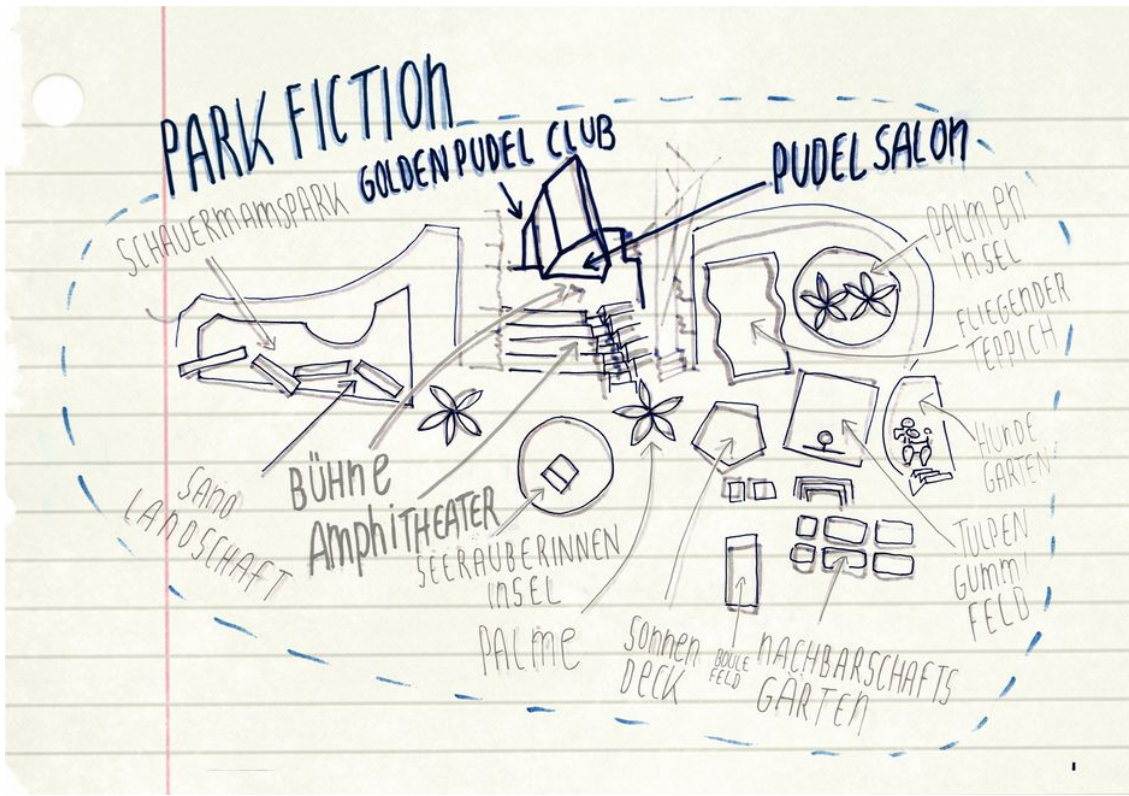 PARK FICTION
GOLDEN PUDEL CLUB
PUDEL SALON
SCHAUERMAMSPARK
PALMEN
INSEL
FLIEGENDER
TEPPICH
HUNDE
GARTEN
SAND
LANDSCHAFT
BÜHNE
AMPHITHEATER
SEERÄUBERINNEN
INSEL
PALME
SONNEN
DECK
BOULE
FELD
NACHBARSCHAFTS
GÄRTEN
TULPEN
GUMMI
FELD